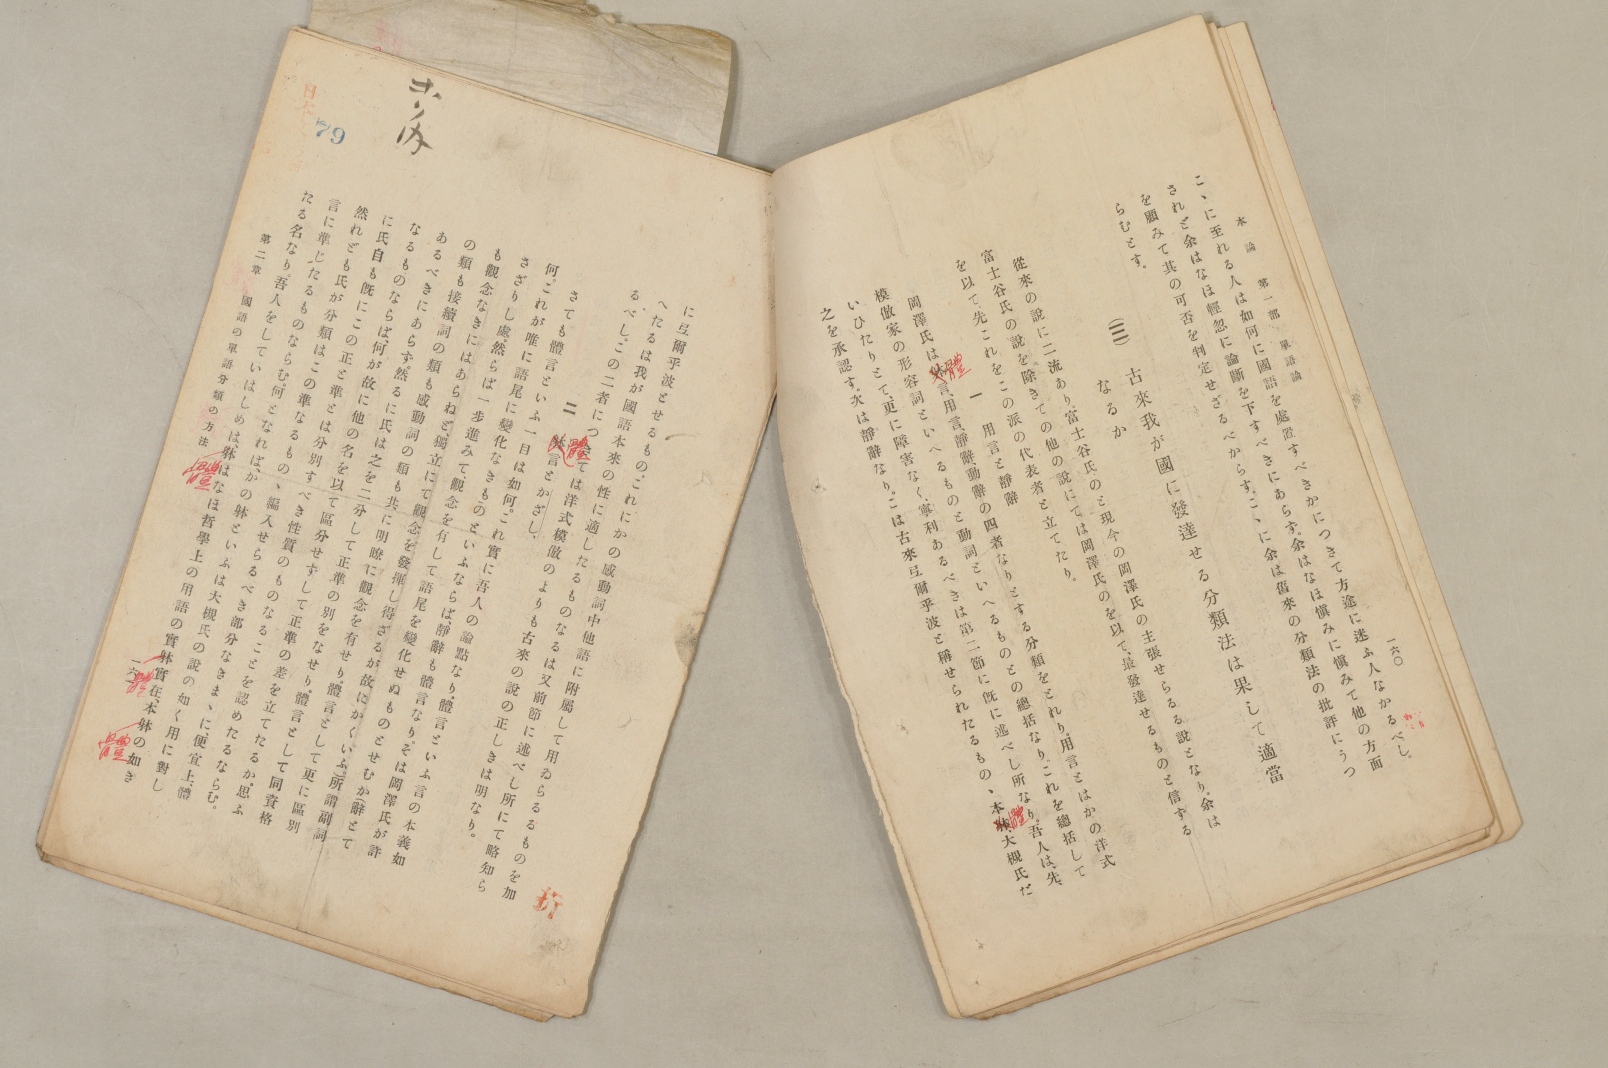 本論 第一部 單語論
一六〇
こゝに至れる人は如何に國語を處置すべきかにつきて方途に迷ふ人なかるべし。
されど余はなほ輕忽に論斷を下すべきにあらず。余はなほ愼みに愼みて他の方面
を顧みて其の可否を判定せざるべからず。こゝに余は舊來の分類法の批評にうつ
らむとす。
(三) 古來我が國に發達せる分類法は果して適當
なるか
從來の說に二流あり。富士谷氏のと現今の岡澤氏の主張せらるゝ說となり。余は
富士谷氏の說を除きての他の說にては岡澤氏のを以て、最發達せるものと信ずる
を以て先これをこの派の代表者と立てたり。
一 用言と靜辭
岡澤氏は體言、用言、靜辭、動辭の四者なりとする分類をとれり。用言とはかの洋式
模倣家の形容詞といへるものと動詞といへるものとの總括なり。これを總括して
いひたりとて、更に障害なく、寧利あるべきは第二節に既に述べし所なり。吾人は、先、
之を承認す。次は靜辭なり。こは古來弖爾乎波と稱せられたるもの、本體大槻氏だ
に弖爾乎波とせるもの、これにかの感動詞中他語に附屬して用ゐらるるものを加
へたるは我が國語本來の性に適したるものなるは又前節に述べし所にて略知ら
るべし。この二者につきては洋式模倣のよりも古來の說の正しきは明なり。
二 體言とかざし
さても體言といふ一目は如何。これ實に吾人の論點なり。體言といふ言の本義如
何。これが唯に語尾に變化なきものといふならば、靜辭も體言なり。そは岡澤氏が許
さざりし處。然らば一步進みて、觀念を有して語尾を變化せぬものとせむか(辭とて
も觀念なきにはあらねど、獨立にて觀念を發揮し得ざるが故にかくいふ。)所謂副詞
の類も接續詞の類も感動詞の類も共に明瞭に觀念を有せり。體言として更に區別
あるべきにあらず。然るに氏は之を二分して正準の別をなせり。體言として同資格
なるものならば、何が故に他の名を以て區分せずして正準の差を立てたるか。思ふ
に氏自も既にこの正と準とは分別すべき性質のものなることを認めたるならむ。
然れども氏が分類はこの準なるものゝ編入せらるべき部分なきまゝに、便宜上、體
言に準じたるものならむ。何となれば、かの體といふは大槻氏の說の如く用に對し
たる名なり。吾人をしていはしめば、體はなほ哲學上の用語の實體、實在、本體の如き
第二章 國語の單語分類の方法
一六一
79